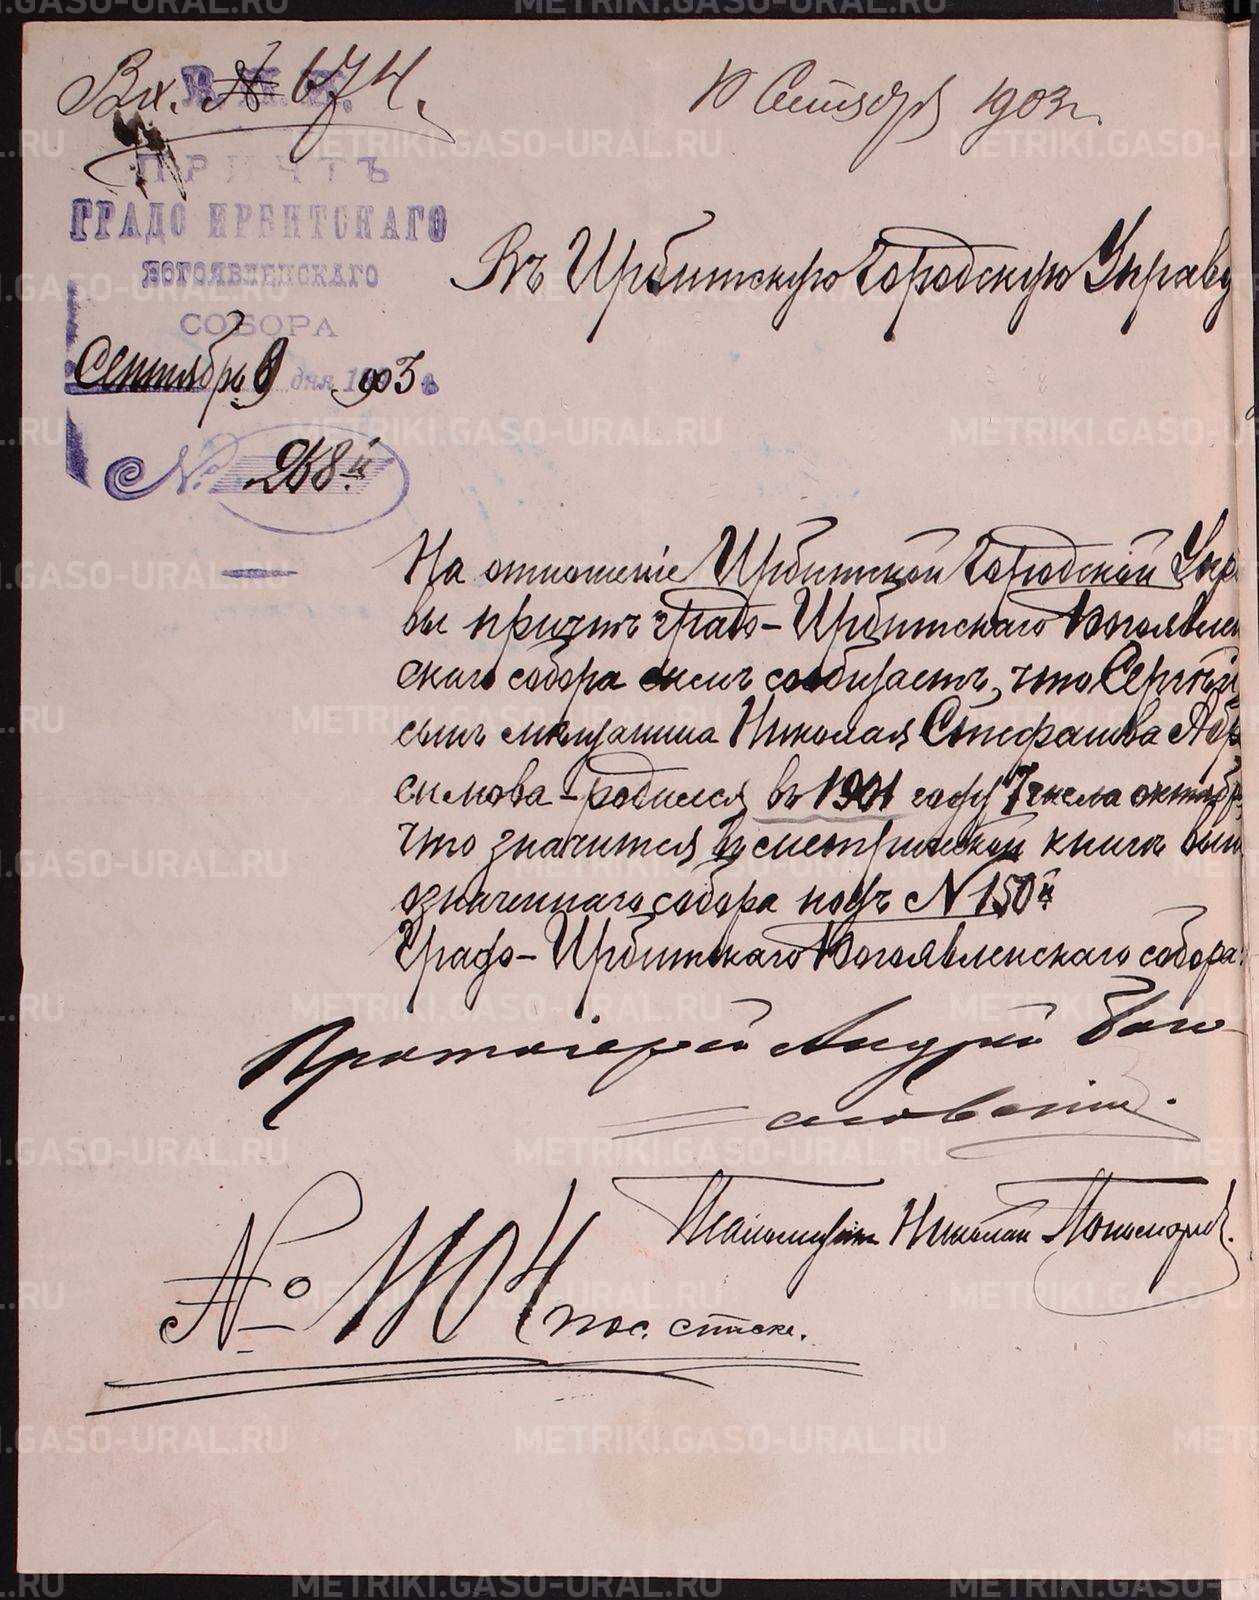 Вх. № 674.
10 Сентября 1903 г.
В. П. И.
ПРИЧТЪ
ГРАДО ИРБИТСКАГО
БОГОЯВЛЕНСКАГО
СОБОРА
Сентябрь 9 дня 1903 г.
№ 268й
Въ Ирбитскую Городскую Управу
На отношеніе Ирбитской Городской Упра
вы причтъ градо-Ирбитскаго Богоявлен
скаго собора симъ сообщаетъ, что Сергѣй
сынъ мѣщанина Николая Стефанова Абр
симова - родился въ 1901 году 7 числа октябр
что значится въ метрической книгѣ выше
означеннаго собора подъ № 150й
Градо-Ирбитскаго Богоявленскаго собора:
Протоіерей Андрей
Псаломщикъ Николай Пономаревъ.
№ 1104 пос. списк.
METRIKI.GASO-URAL.RU